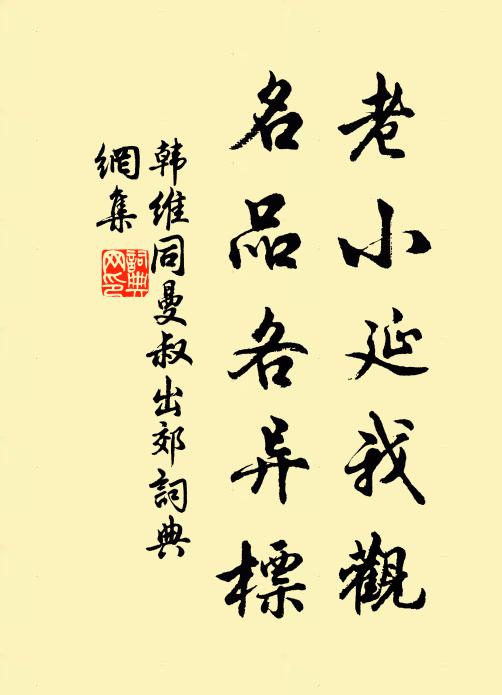 老小延我觀
名品各异標
韩维同曼叔出郊詞典
網集
詞典
网印